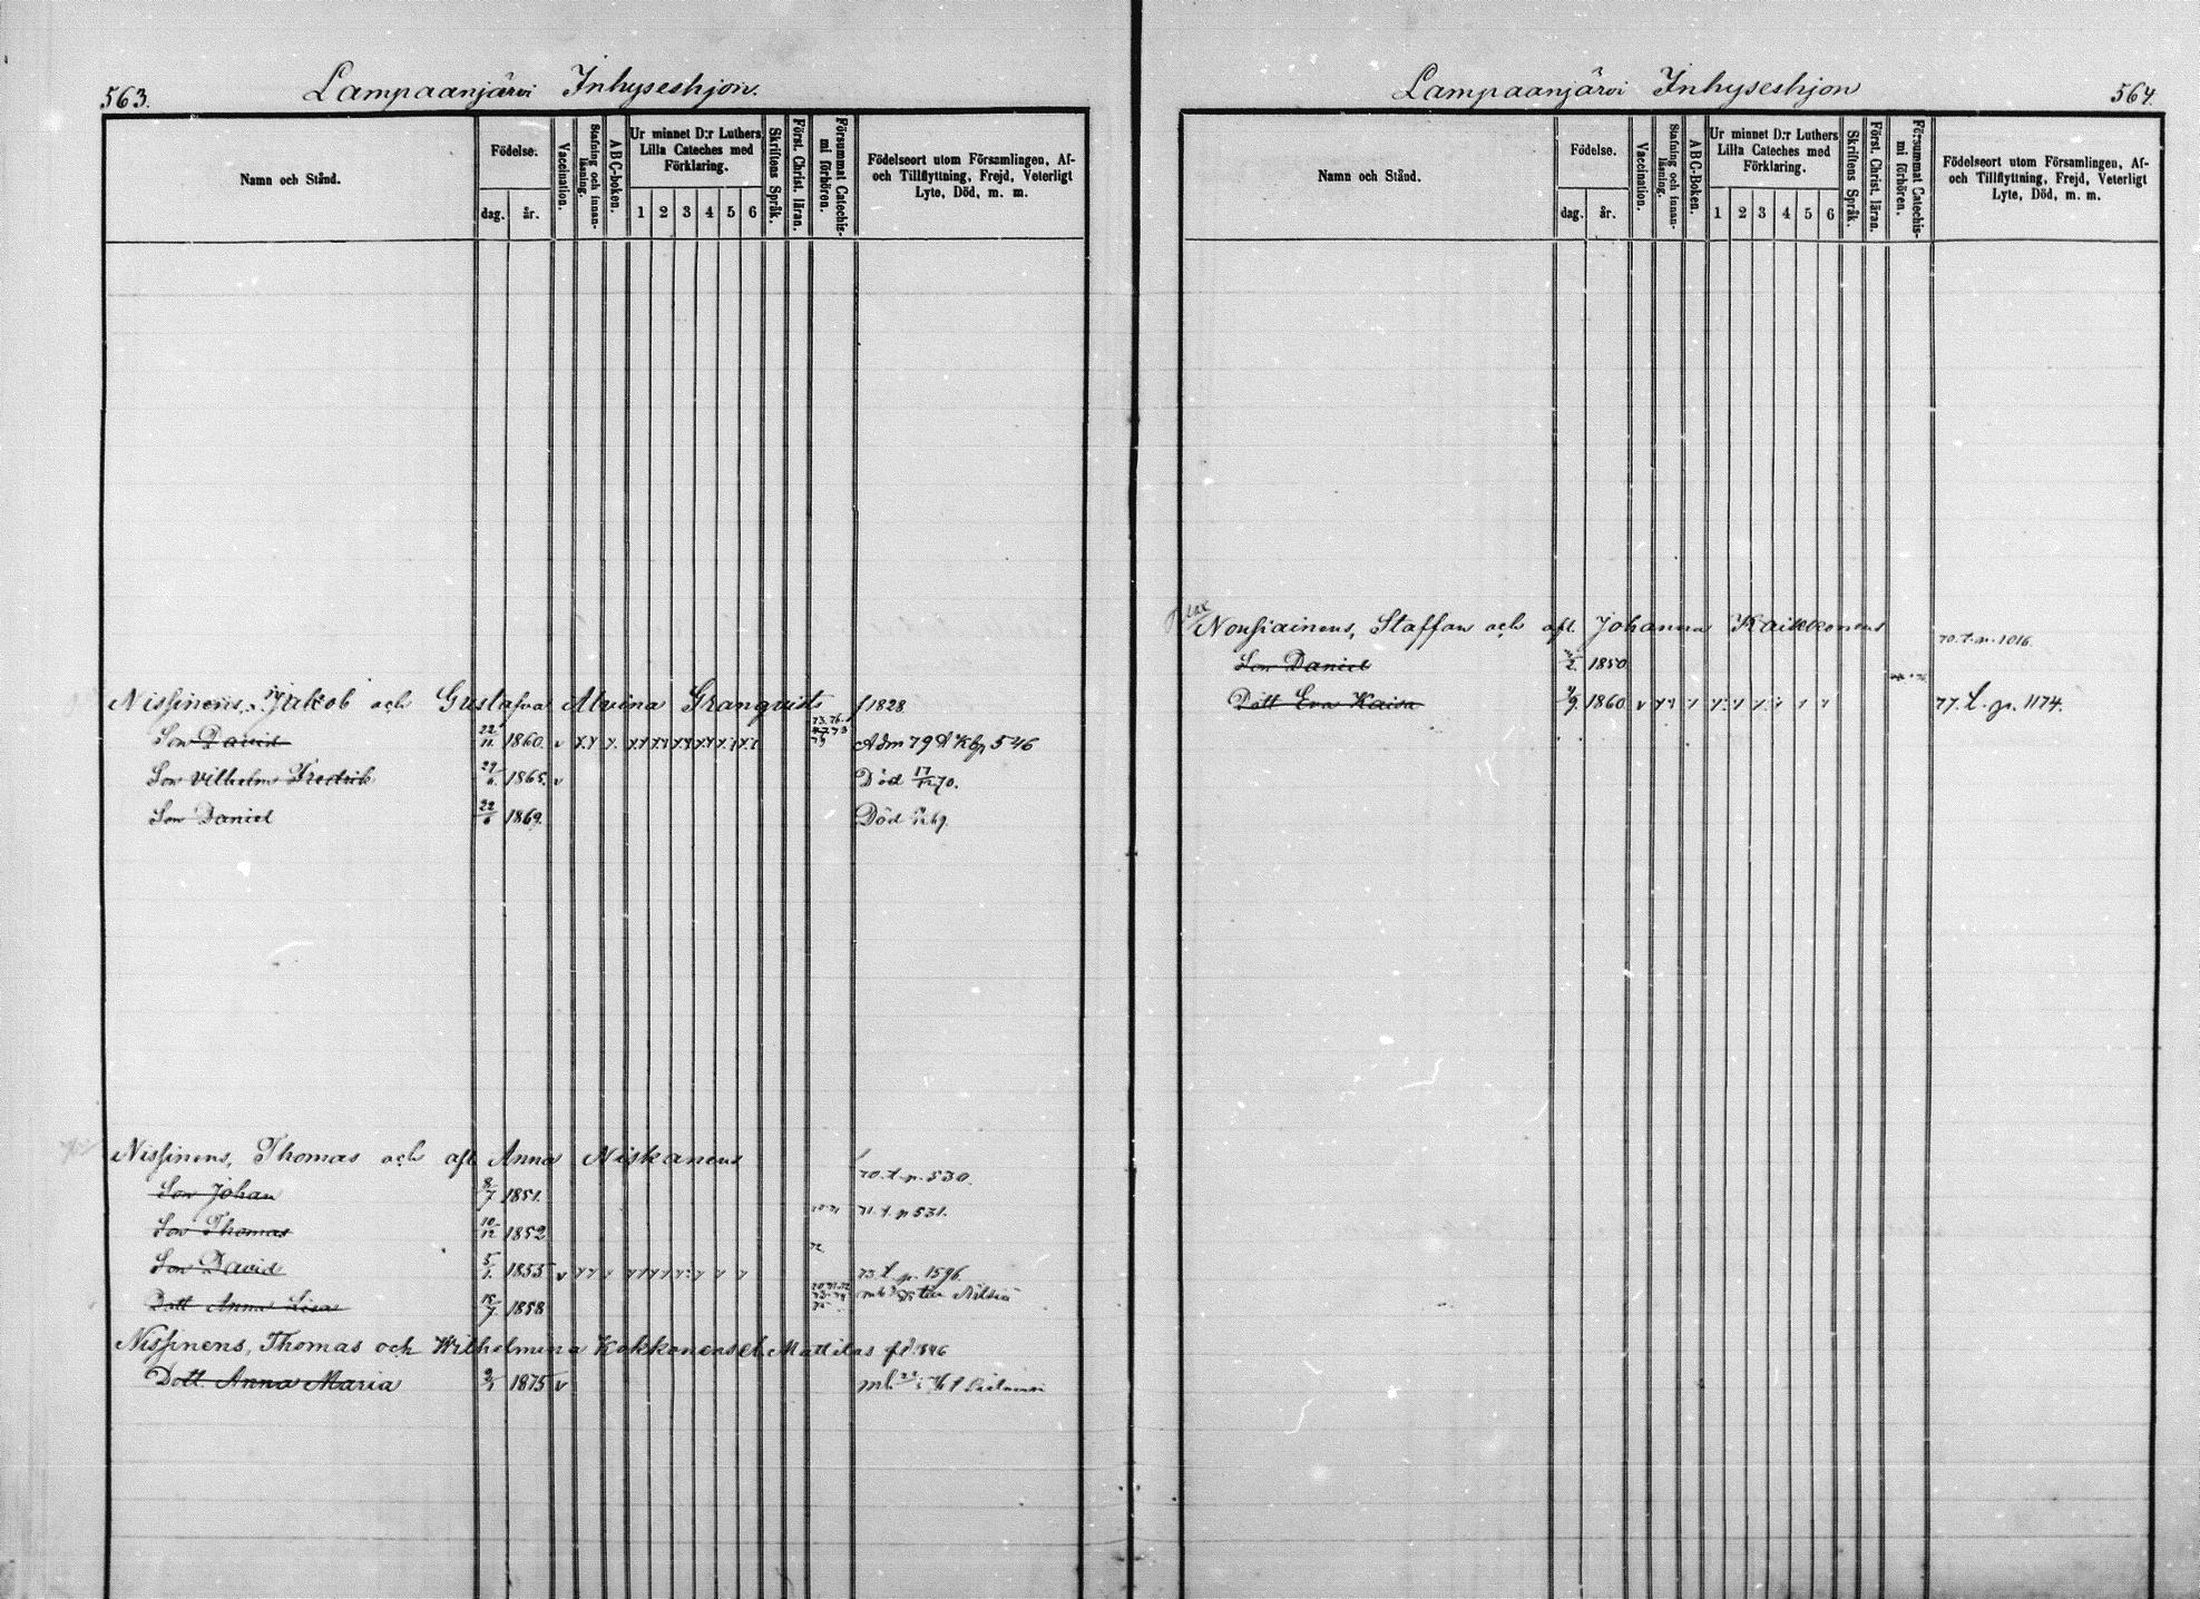 563.
Lampaanjärvi Inhyseshjon.
Namn och Stånd.
Födelse.
dag. år.
Vaccination.
Stafning och innanläsning.
ABC-boken.
Ur minnet D:r Luthers
Lilla Cateches med
Förklaring.
1 2 3 4 5 6
Skriftens Språk.
Först. Christ. läran.
Försummat Catechismi förhören.
Födelseort utom Församlingen, Af-
och Tillflyttning, Frejd, Veterligt
Lyte, Död, m. m.
Nissinens, Jakob och Gustafva Alvina Granqvists f 1828
Son David 22/11 1860. v Adm 79 A Kbp 546
Son Vilhelm Fredrik 1865. v Död 70.
Son Daniel 22/6 1869. Död 69.
Nissinens, Thomas och aft Anna Niskanens
70. t. p. 530.
Son Johan 8/7 1851.
71. t. p 531.
Son Thomas 10/12 1852
Son David 5/1. 1855 v 73 t. p. 1596.
Dott Anna Lisa 15/7. 1858
Nissinens, Thomas och Wilhelmina Kokkonens el. Mattilas fd 1846
Dott. Anna Maria 1875 v
564.
Lampaanjärvi Inhyseshjon
Namn och Stånd.
Födelse.
dag. år.
Vaccination.
Stafning och innanläsning.
ABC-Boken.
Ur minnet D:r Luthers
Lilla Cateches med
Förklaring.
1 2 3 4 5 6
Skriftens Språk.
Först. Christ. läran.
Försummat Catechismi förhören.
Födelseort utom Församlingen, Af-
och Tillflyttning, Frejd, Veterligt
Lyte, Död, m. m.
Nousiainens, Staffan och aft. Johanna Kaikkonens
70. t. p. 1016.
Son Daniel 1850
Dott Eva Kaisa 1860 v 77. t. p. 1174.